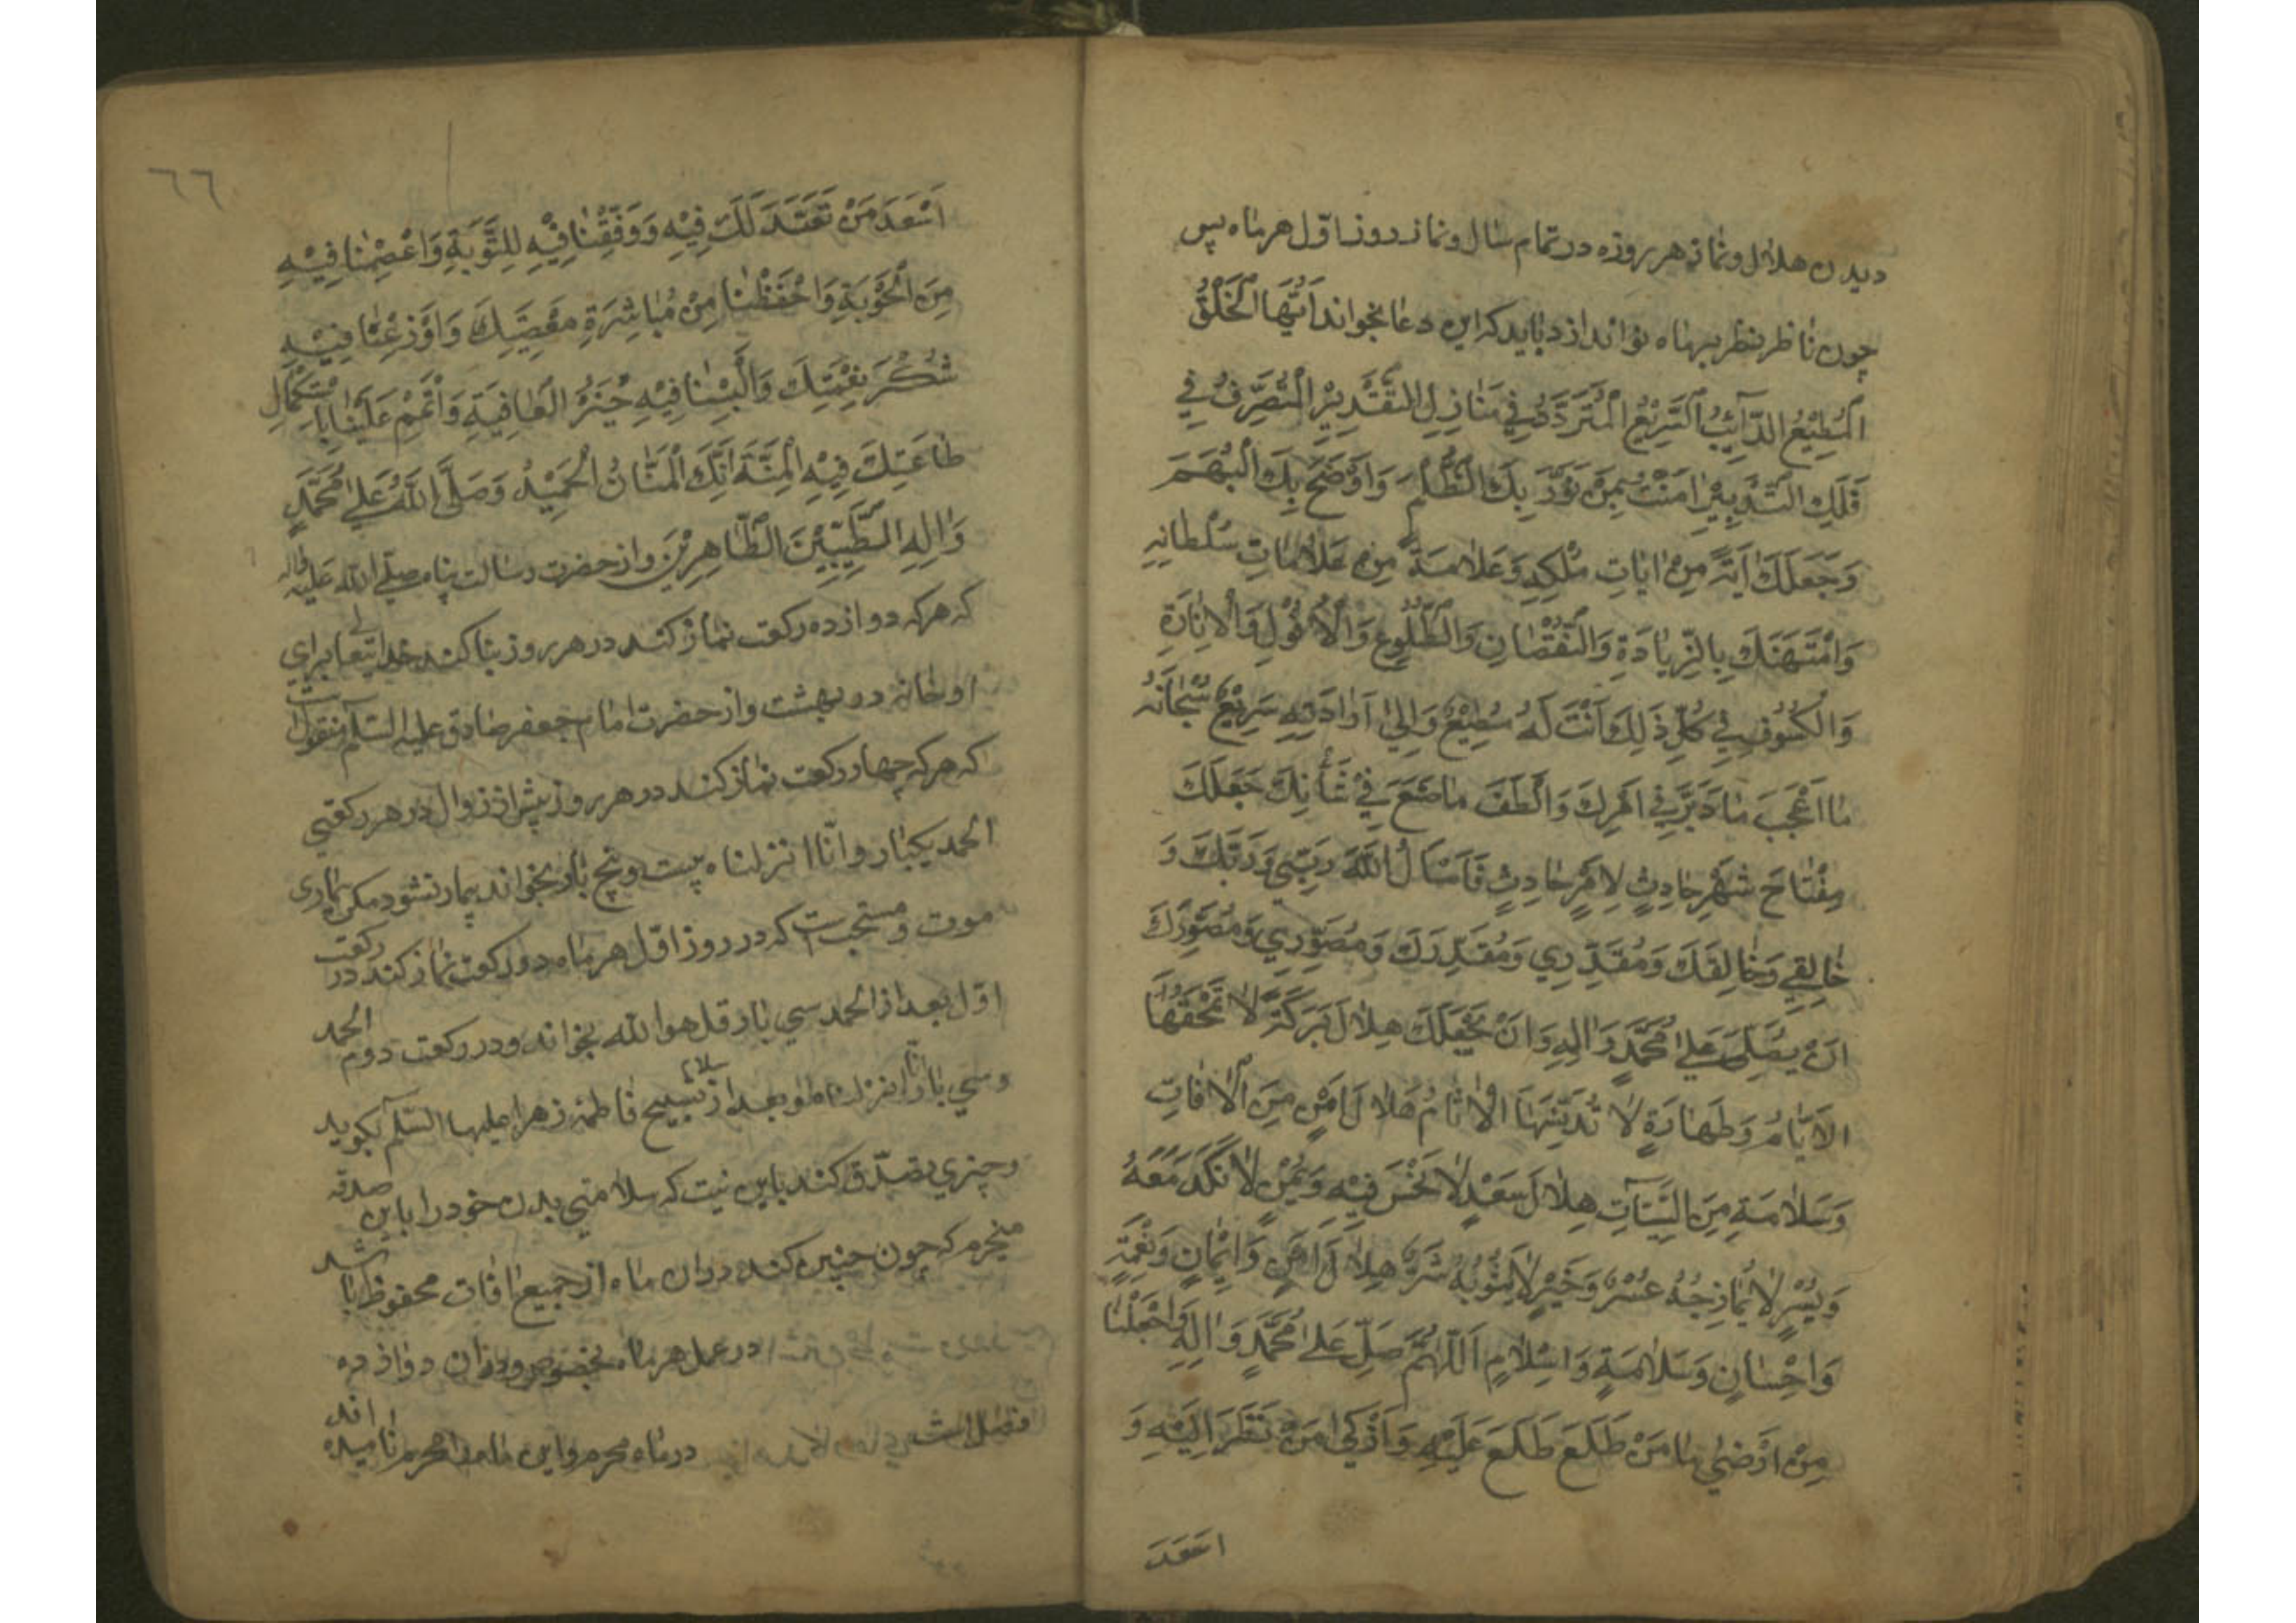 دیدن هلال و نماز هر روزه در تمام سال و نماز روز اوّل هر ماه پس
چون ناظر بنظر بهماه نو اندازد باید که این دعا بخواند اَیُّهَا الْخَلْقُ
الْمُطِیْعُ الدَّآئِبُ السَّرِیْعُ الْمُتَرَدِّدُ فِی مَنَازِلِ التَّقْدِیْرِ الْمُتَصَرِّفُ فِي
فَلَكِ التَّدْبِیْرِ اٰمَنْتُ بِمَنْ نَوَّرَ بِكَ الظُّلَمَ وَاَوْضَحَ بِكَ الْبُهَمَ
وَجَعَلَكَ اٰیَةً مِنْ اٰیَاتِ مُلْكِهِ وَعَلَامَةً مِنْ عَلَامَاتِ سُلْطَانِهِ
وَامْتَهَنَكَ بِالزِّیَادَةِ وَالنُّقْصَانِ وَالطُّلُوعِ وَالْاُفُوْلِ وَالْاِنَارَةِ
وَالْكُسُوْفِ فِي كُلِّ ذٰلِكَ اَنْتَ لَهُ مُطِیْعٌ وَاِلٰي اَرَادَتِهِ سَرِیْعٌ سُبْحَانَهُ
مَا اَعْجَبَ مَا دَبَّرَ فِي اَمْرِكَ وَاَلْطَفَ مَا صَنَعَ فِيْ شَأْنِكَ جَعَلَكَ
مِفْتَاحَ شَهْرٍ حَادِثٍ لِاَمْرٍ حَادِثٍ فَاَسْاَلُ اللّٰهَ رَبِّي وَرَبَّكَ وَ
خَالِقِي وَخَالِقَكَ وَمُقَدِّرِي وَمُقَدِّرَكَ وَمُصَوِّرِي وَمُصَوِّرَكَ
اَنْ یُصَلِّيَ عَلٰي مُحَمَّدٍ وَاٰلِهِ وَاَنْ یَجْعَلَكَ هِلَالَ بَرَكَةٍ لَا تَمْحَقُهَا
الْاَیَّامُ وَطَهَارَةٍ لَا تُدَنِّسُهَا الْاٰثَامُ هِلَالَ اَمْنٍ مِنَ الْاٰفَاتِ
وَسَلَامَةٍ مِنَ السَّیِّئَآتِ هِلَالَ سَعْدٍ لَا نَحْسَ فِیْهِ وَیُمْنٍ لَا نَكَدَ مَعَهُ
وَیُسْرٍ لَا یُمَازِجُهُ عُسْرٌ وَخَیْرٍ لَا یَشُوْبُهُ شَرٌّ هِلَالَ اَمْنٍ وَاِیْمَانٍ وَنِعْمَةٍ
وَاِحْسَانٍ وَسَلَامَةٍ وَاِسْلَامٍ اَللّٰهُمَّ صَلِّ عَلٰي مُحَمَّدٍ وَاٰلِهِ وَاجْعَلْنَا
مِنْ اَرْضٰي مَنْ طَلَعَ طَلَعَ عَلَیْهِ وَاَزْكٰي مَنْ نَظَرَ اِلَیْهِ وَ
اسعد
٦٦
اَسْعَدَ مَنْ تَعَبَّدَ لَكَ فِیْهِ وَوَفِّقْنَا فِیْهِ لِلتَّوْبَةِ وَاعْصِمْنَا فِیْهِ
مِنَ الْحَوْبَةِ وَاحْفَظْنَا مِنْ مُبَاشِرَةِ مَعْصِیَتِكَ وَاَوْزِعْنَا فِیْهِ
شُكْرَ نِعْمَتِكَ وَاَلْبِسْنَا فِیْهِ جُنَنَ الْعَافِیَةِ وَاَتْمِمْ عَلَیْنَا بِاسْتِكْمَالِ
طَاعَتِكَ فِیْهِ الْمِنَّةَ اِنَّكَ الْمَنَّانُ الْحَمِیْدُ وَصَلَّی اللّٰهُ عَلٰي مُحَمَّدٍ
وَاٰلِهِ الطَّیِّبِیْنَ الطَّاهِرِیْنَ و از حضرت رسالت پناه صلی الله علیه واله
که هر که دوازده رکعت نماز کند در هر روز بنا کند خدایتعالی برای
او خانه در بهشت و از حضرت امام جعفر صادق علیه السّلام منقولست
که هر که چهار رکعت نماز کند در هر روز پیش از زوال در هر رکعتی
الحمد یکبار و انّا انزلناه بیست و پنج بار بخواند بیمار نشود مکر بیماری
موت و مستحب است که در روز اوّل هر ماه دو رکعت نماز کند در رکعت
اوّل بعد از الحمد سی بار قل هو الله بخواند و در رکعت دوم الحمد
و سی بار انّا انزلناه و بعد از سلام تسبیح فاطمه زهرا علیها السّلام بکوید
و چیزی تصدّق کند باین نیت که سلامتی بدن خود را باین صدقه
میخرم که چون چنین کند در ان ماه از جمیع افات محفوظ باشد
در عمل هر ماه بخصوص و در ان دوازده
فصل است در ماه محرم و این ماه را محرم نامیده اند